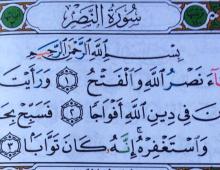 سُورَةُ النَّصْرِ
بِسْمِ اللَّهِ الرَّحْمَٰنِ الرَّحِيمِ
نَصْرُ اللَّهِ وَالْفَتْحُ ۝١ وَرَأَيْتَ
فِي دِينِ اللَّهِ أَفْوَاجًا ۝٢ فَسَبِّحْ
وَاسْتَغْفِرْهُ ۚ إِنَّهُ كَانَ تَوَّابًا ۝٣